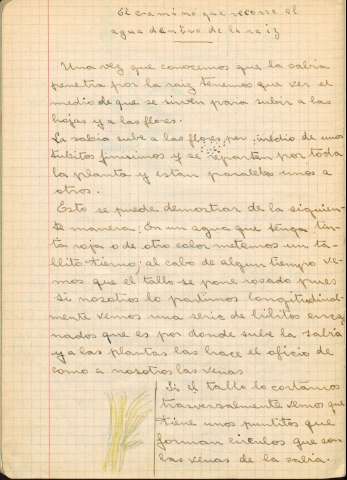 El camino que recorre el
agua dentro de la raiz
Una vez que conocemos que la sabia
penetra por la raiz tenemos que ver el
medio de que se sirven para subir a las
hojas y a las flores.
La sabia sube a las flores por medio de unos
tubitos finisimos y se reparten por toda
la planta y estan paralelos unos a
otros.
Esto se puede demostrar de la siguien-
te manera; En un agua que tenga tin-
ta roja o de otro color metemos un ta-
llito tierno; al cabo de algun tiempo ve-
mos que el tallo se pone rosado pues
si nosotros lo partimos longitudinal-
mente vemos una serie de hilitos
que es por donde sube la sabia
y a las plantas las hace el oficio de
como a nosotros las venas
Si el tallo lo cortamos
trasversalmente vemos que
tiene unos puntitos que
forman circulos que son
las venas de la sabia.